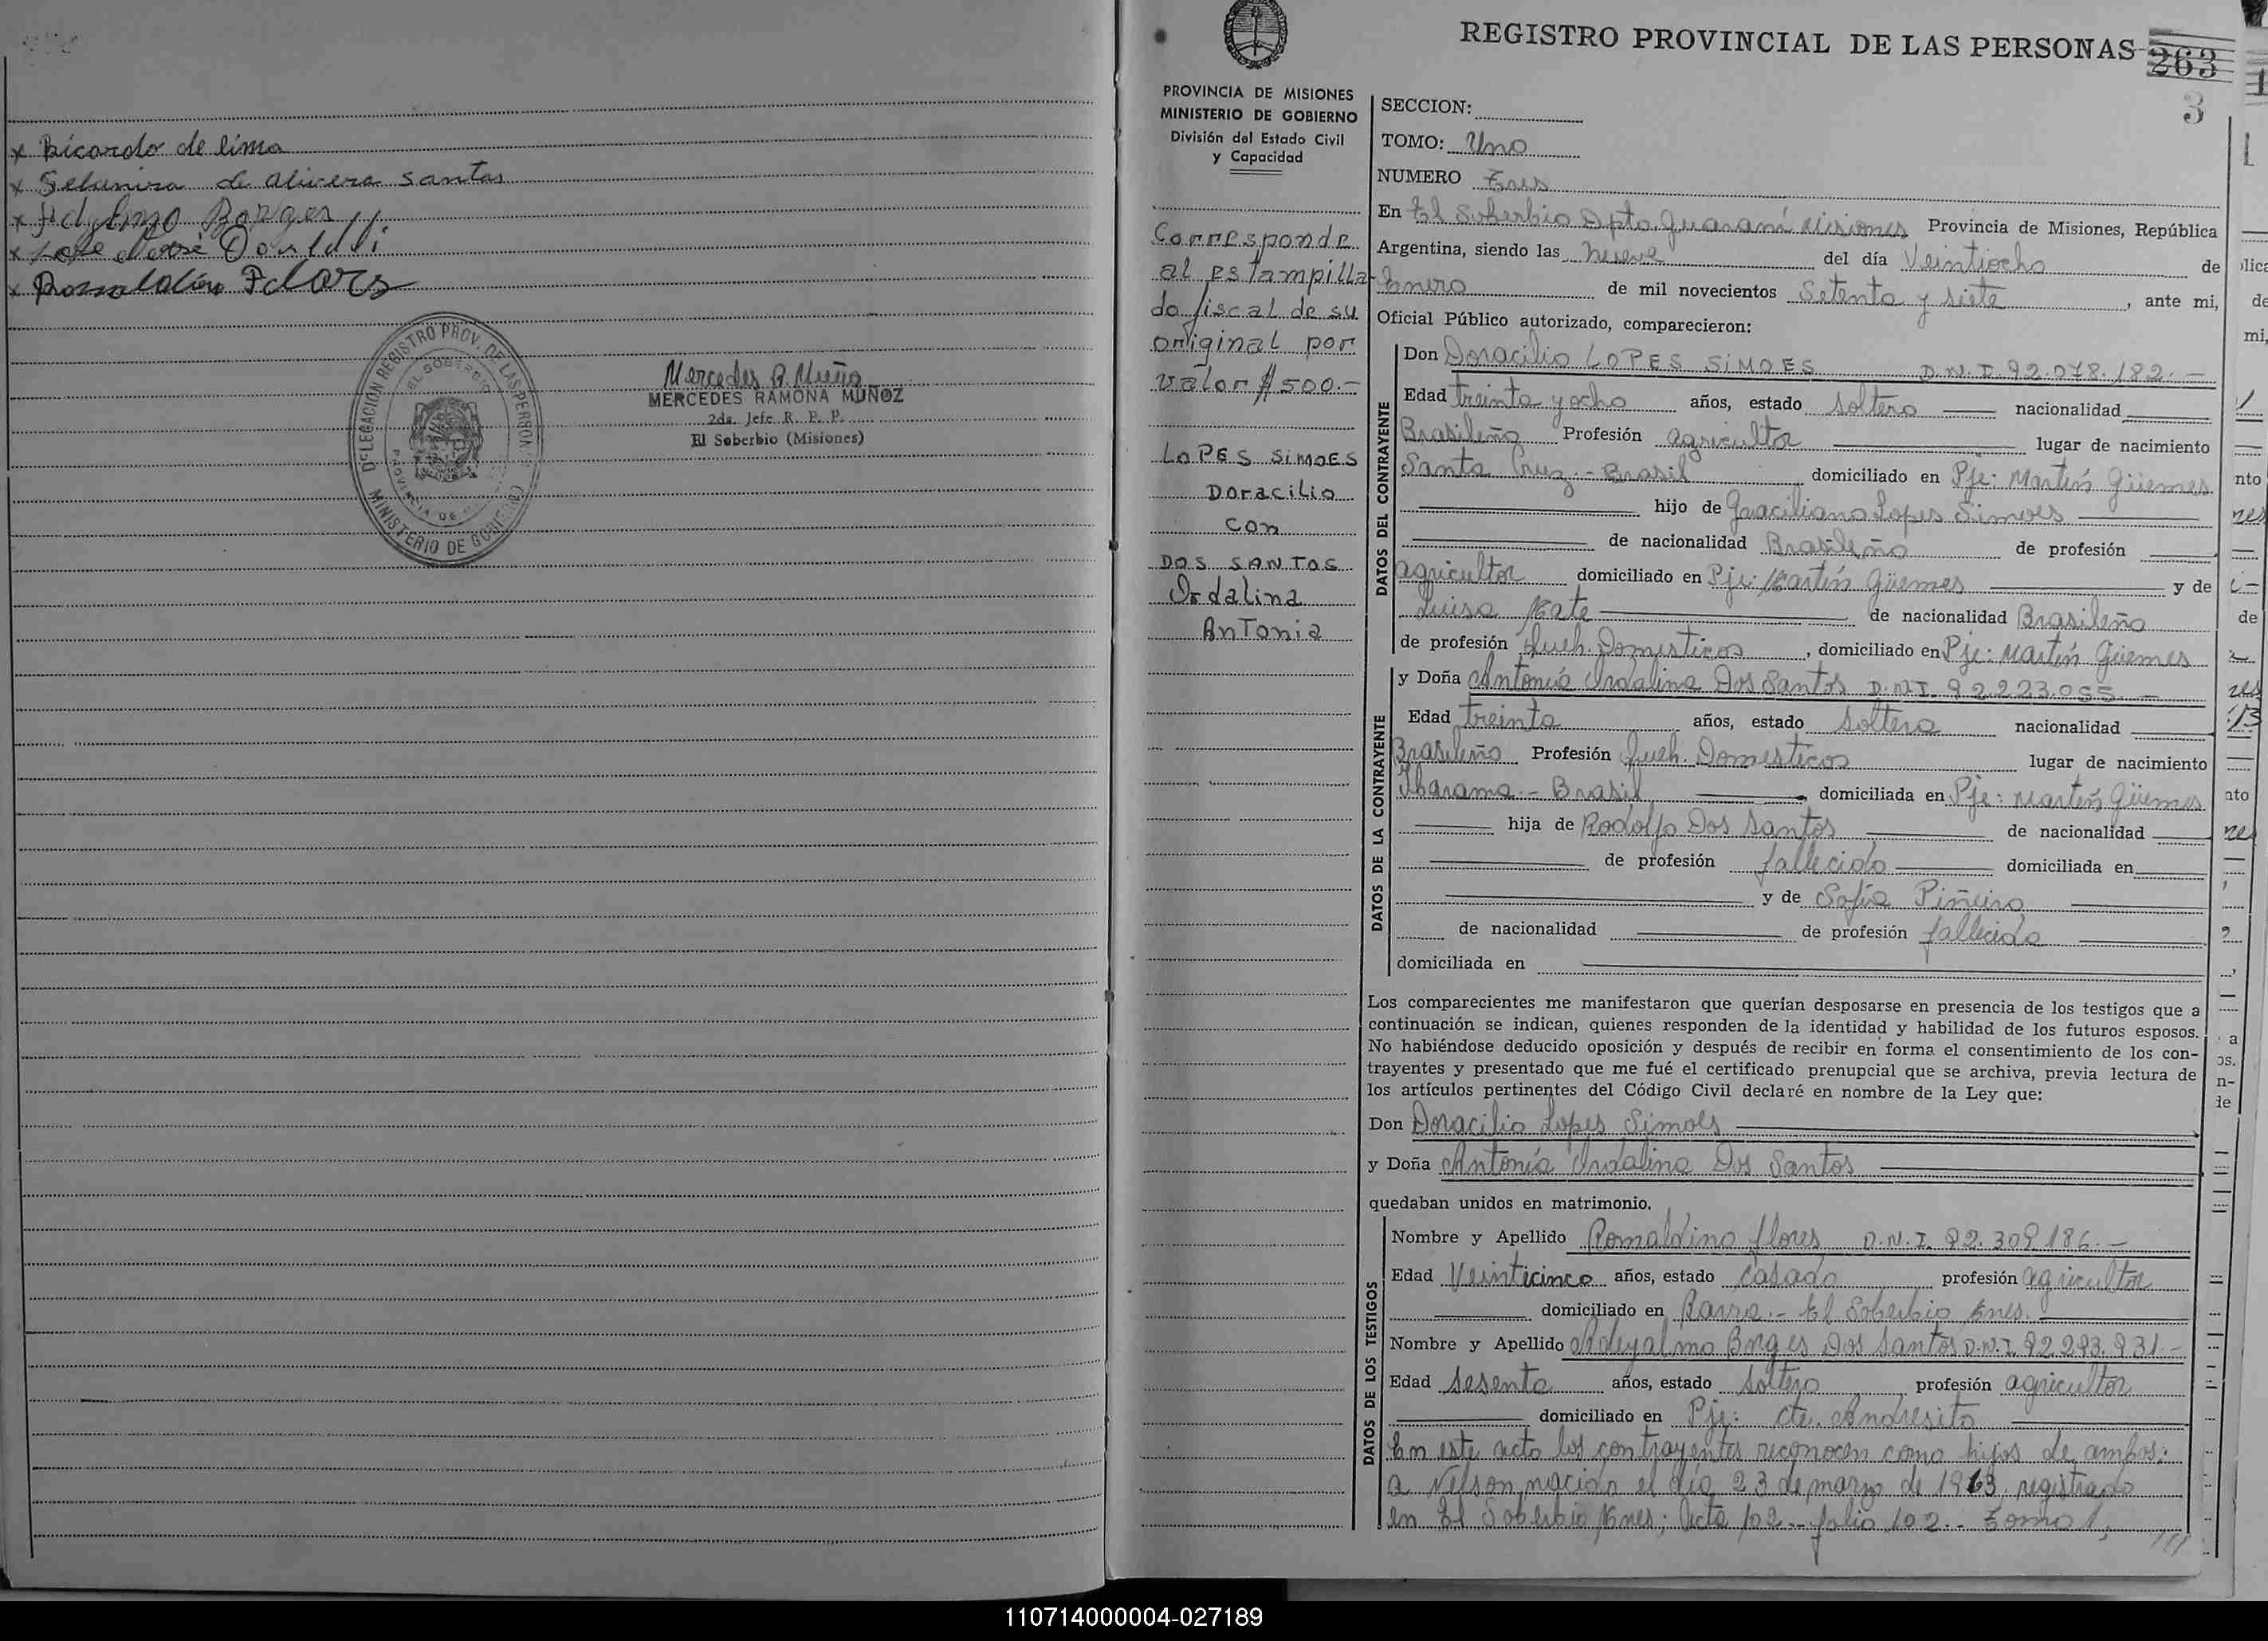 x Ricardo de lima
x Selanira de alivera santos
x Borges
x Jose
x Romaldino Flores
DELEGACION REGISTRO PROV. DE LAS PERSONAS
EL SOBERBIO
PROVINCIA DE MISIONES
MINISTERIO DE GOBIERNO
Mercedes R. Muñoz
MERCEDES RAMONA MUÑOZ
2da. Jefe R. P. P.
El Soberbio (Misiones)
REGISTRO PROVINCIAL DE LAS PERSONAS
263
3
PROVINCIA DE MISIONES
MINISTERIO DE GOBIERNO
División del Estado Civil
y Capacidad
Corresponde
al estampilla-
do fiscal de su
original por
valor $ 500.-
LOPES SIMOES
Doracilio
con
DOS SANTOS
Ordalina
Antonia
SECCION:
TOMO: Uno
NUMERO Tres
En El Soberbio Dpto. Guaraní Misiones Provincia de Misiones, República
Argentina, siendo las nueve del día Veintiocho de
Enero de mil novecientos Setenta y siete, ante mi,
Oficial Público autorizado, comparecieron:
DATOS DEL CONTRAYENTE
Don Doracilio LOPES SIMOES D.N.I. 92.078.182.-
Edad treinta y ocho años, estado soltero nacionalidad
Brasileño Profesión agricultor lugar de nacimiento
Santa Cruz.- Brasil domiciliado en Pje: Martín Güemes
hijo de Graciliano Lopes Simoes
de nacionalidad Brasileño de profesión
agricultor domiciliado en Pje: Martín Güemes y de
Luisa Kate de nacionalidad Brasileña
de profesión Queh. Domesticos, domiciliado en Pje: Martín Güemes
DATOS DE LA CONTRAYENTE
y Doña Antonia Ordalina Dos Santos D.N.I. 92.223.055.-
Edad treinta años, estado soltera nacionalidad
Brasileña Profesión Queh. Domesticos lugar de nacimiento
Ibarama.- Brasil domiciliada en Pje: Martín Güemes
hija de Rodolfo Dos Santos de nacionalidad
de profesión fallecido domiciliada en
y de Sofia Piñeiro
de nacionalidad de profesión fallecida
domiciliada en
Los comparecientes me manifestaron que querían desposarse en presencia de los testigos que a
continuación se indican, quienes responden de la identidad y habilidad de los futuros esposos.
No habiéndose deducido oposición y después de recibir en forma el consentimiento de los con-
trayentes y presentado que me fué el certificado prenupcial que se archiva, previa lectura de
los artículos pertinentes del Código Civil declaré en nombre de la Ley que:
Don Doracilio Lopes Simoes
y Doña Antonia Ordalina Dos Santos
quedaban unidos en matrimonio.
DATOS DE LOS TESTIGOS
Nombre y Apellido Romaldino flores D.N.I. 92.309.186.-
Edad Veinticinco años, estado casado profesión agricultor
domiciliado en Barra.- El Soberbio Mnes.
Nombre y Apellido Adeyalmo Borges Dos Santos D.N.I. 92.293.931.-
Edad sesenta años, estado soltero profesión agricultor
domiciliado en Pje: cte. Andresito
En este acto los contrayentes reconocen como hijos de ambos:
a Nelson nacido el día 23 de marzo de 1963 registrado
en El Soberbio Mnes; Acta 102.- folio 102.- Tomo 1,
110714000004-027189